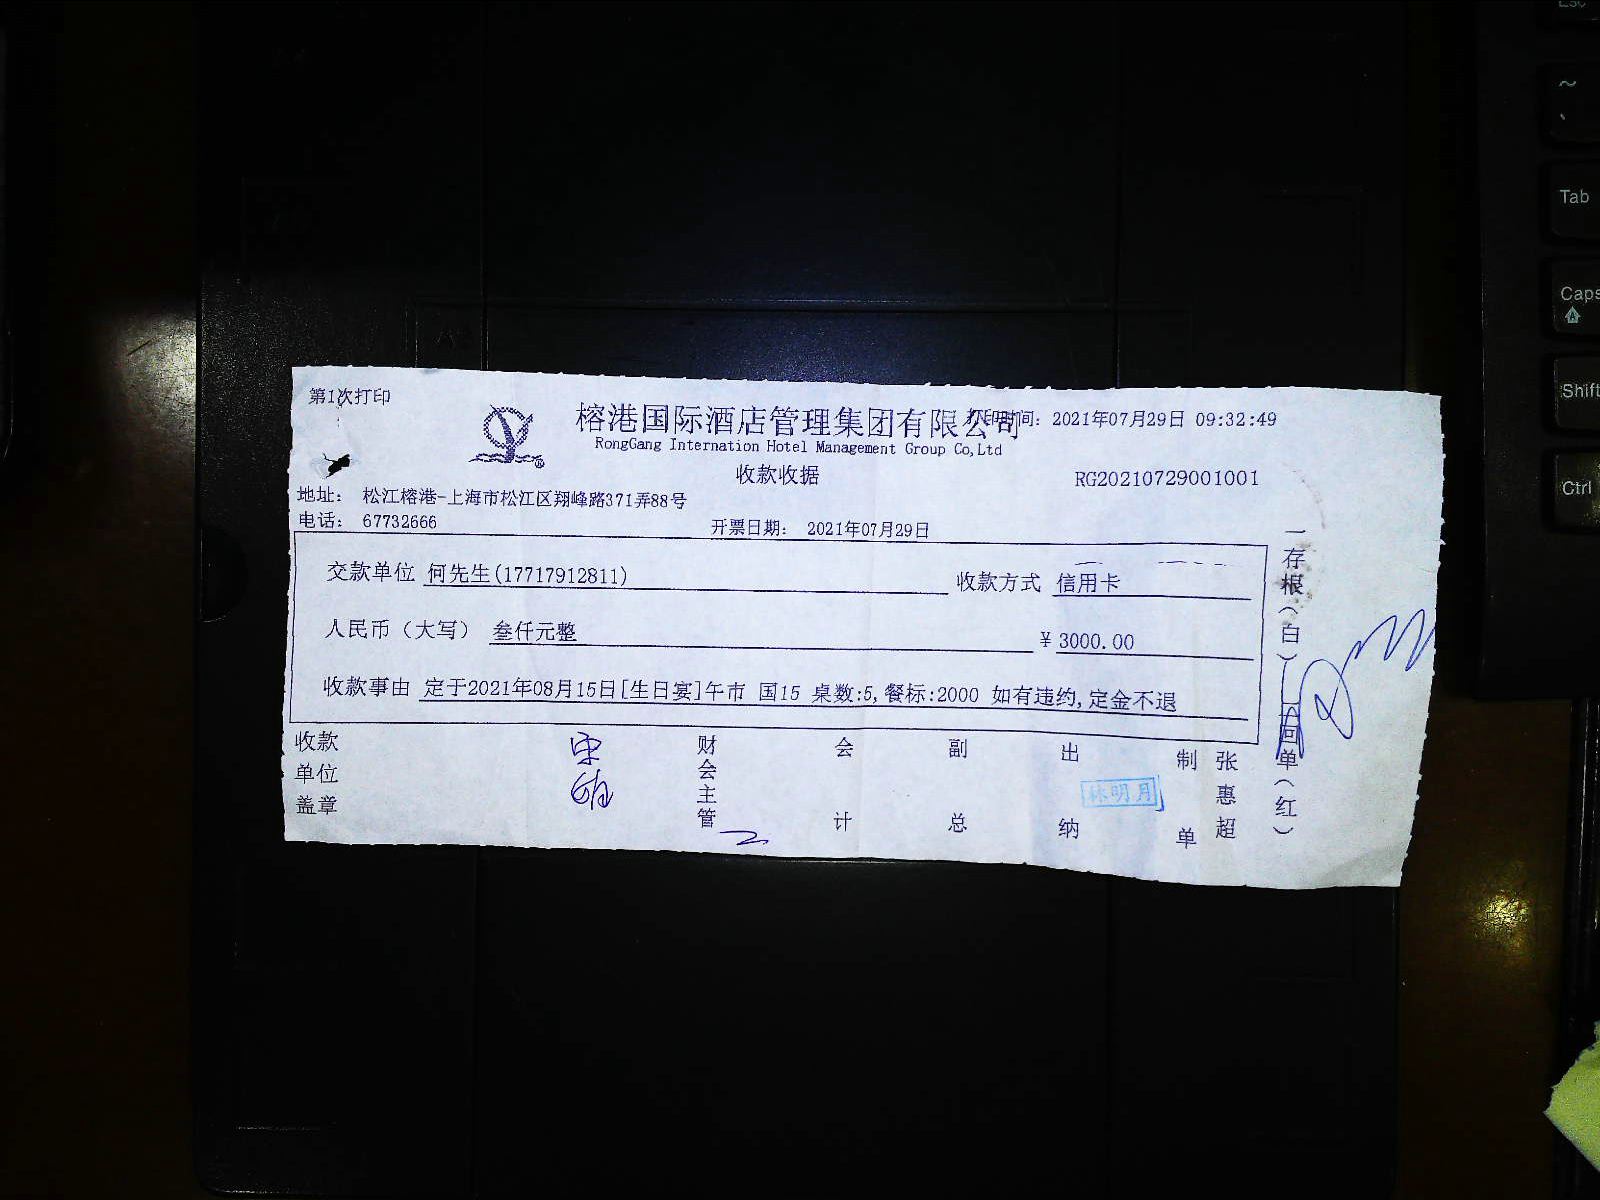 第1次打印
榕港国际酒店管理集团有限公司
打印时间: 2021年07月29日 09:32:49
RongGang Internation Hotel Management Group Co,Ltd
收款收据
RG20210729001001
地址: 松江榕港-上海市松江区翔峰路371弄88号
电话: 67732666
开票日期: 2021年07月29日
交款单位 何先生(17717912811)
收款方式 信用卡
人民币（大写） 叁仟元整
¥ 3000.00
收款事由 定于2021年08月15日[生日宴]午市 国15 桌数:5,餐标:2000 如有违约,定金不退
收款单位盖章
财会主管
会计
副总
出纳
林明月
制单
张惠超
一存根(白)
回单(红)
Tab
Caps
Shift
Ctrl